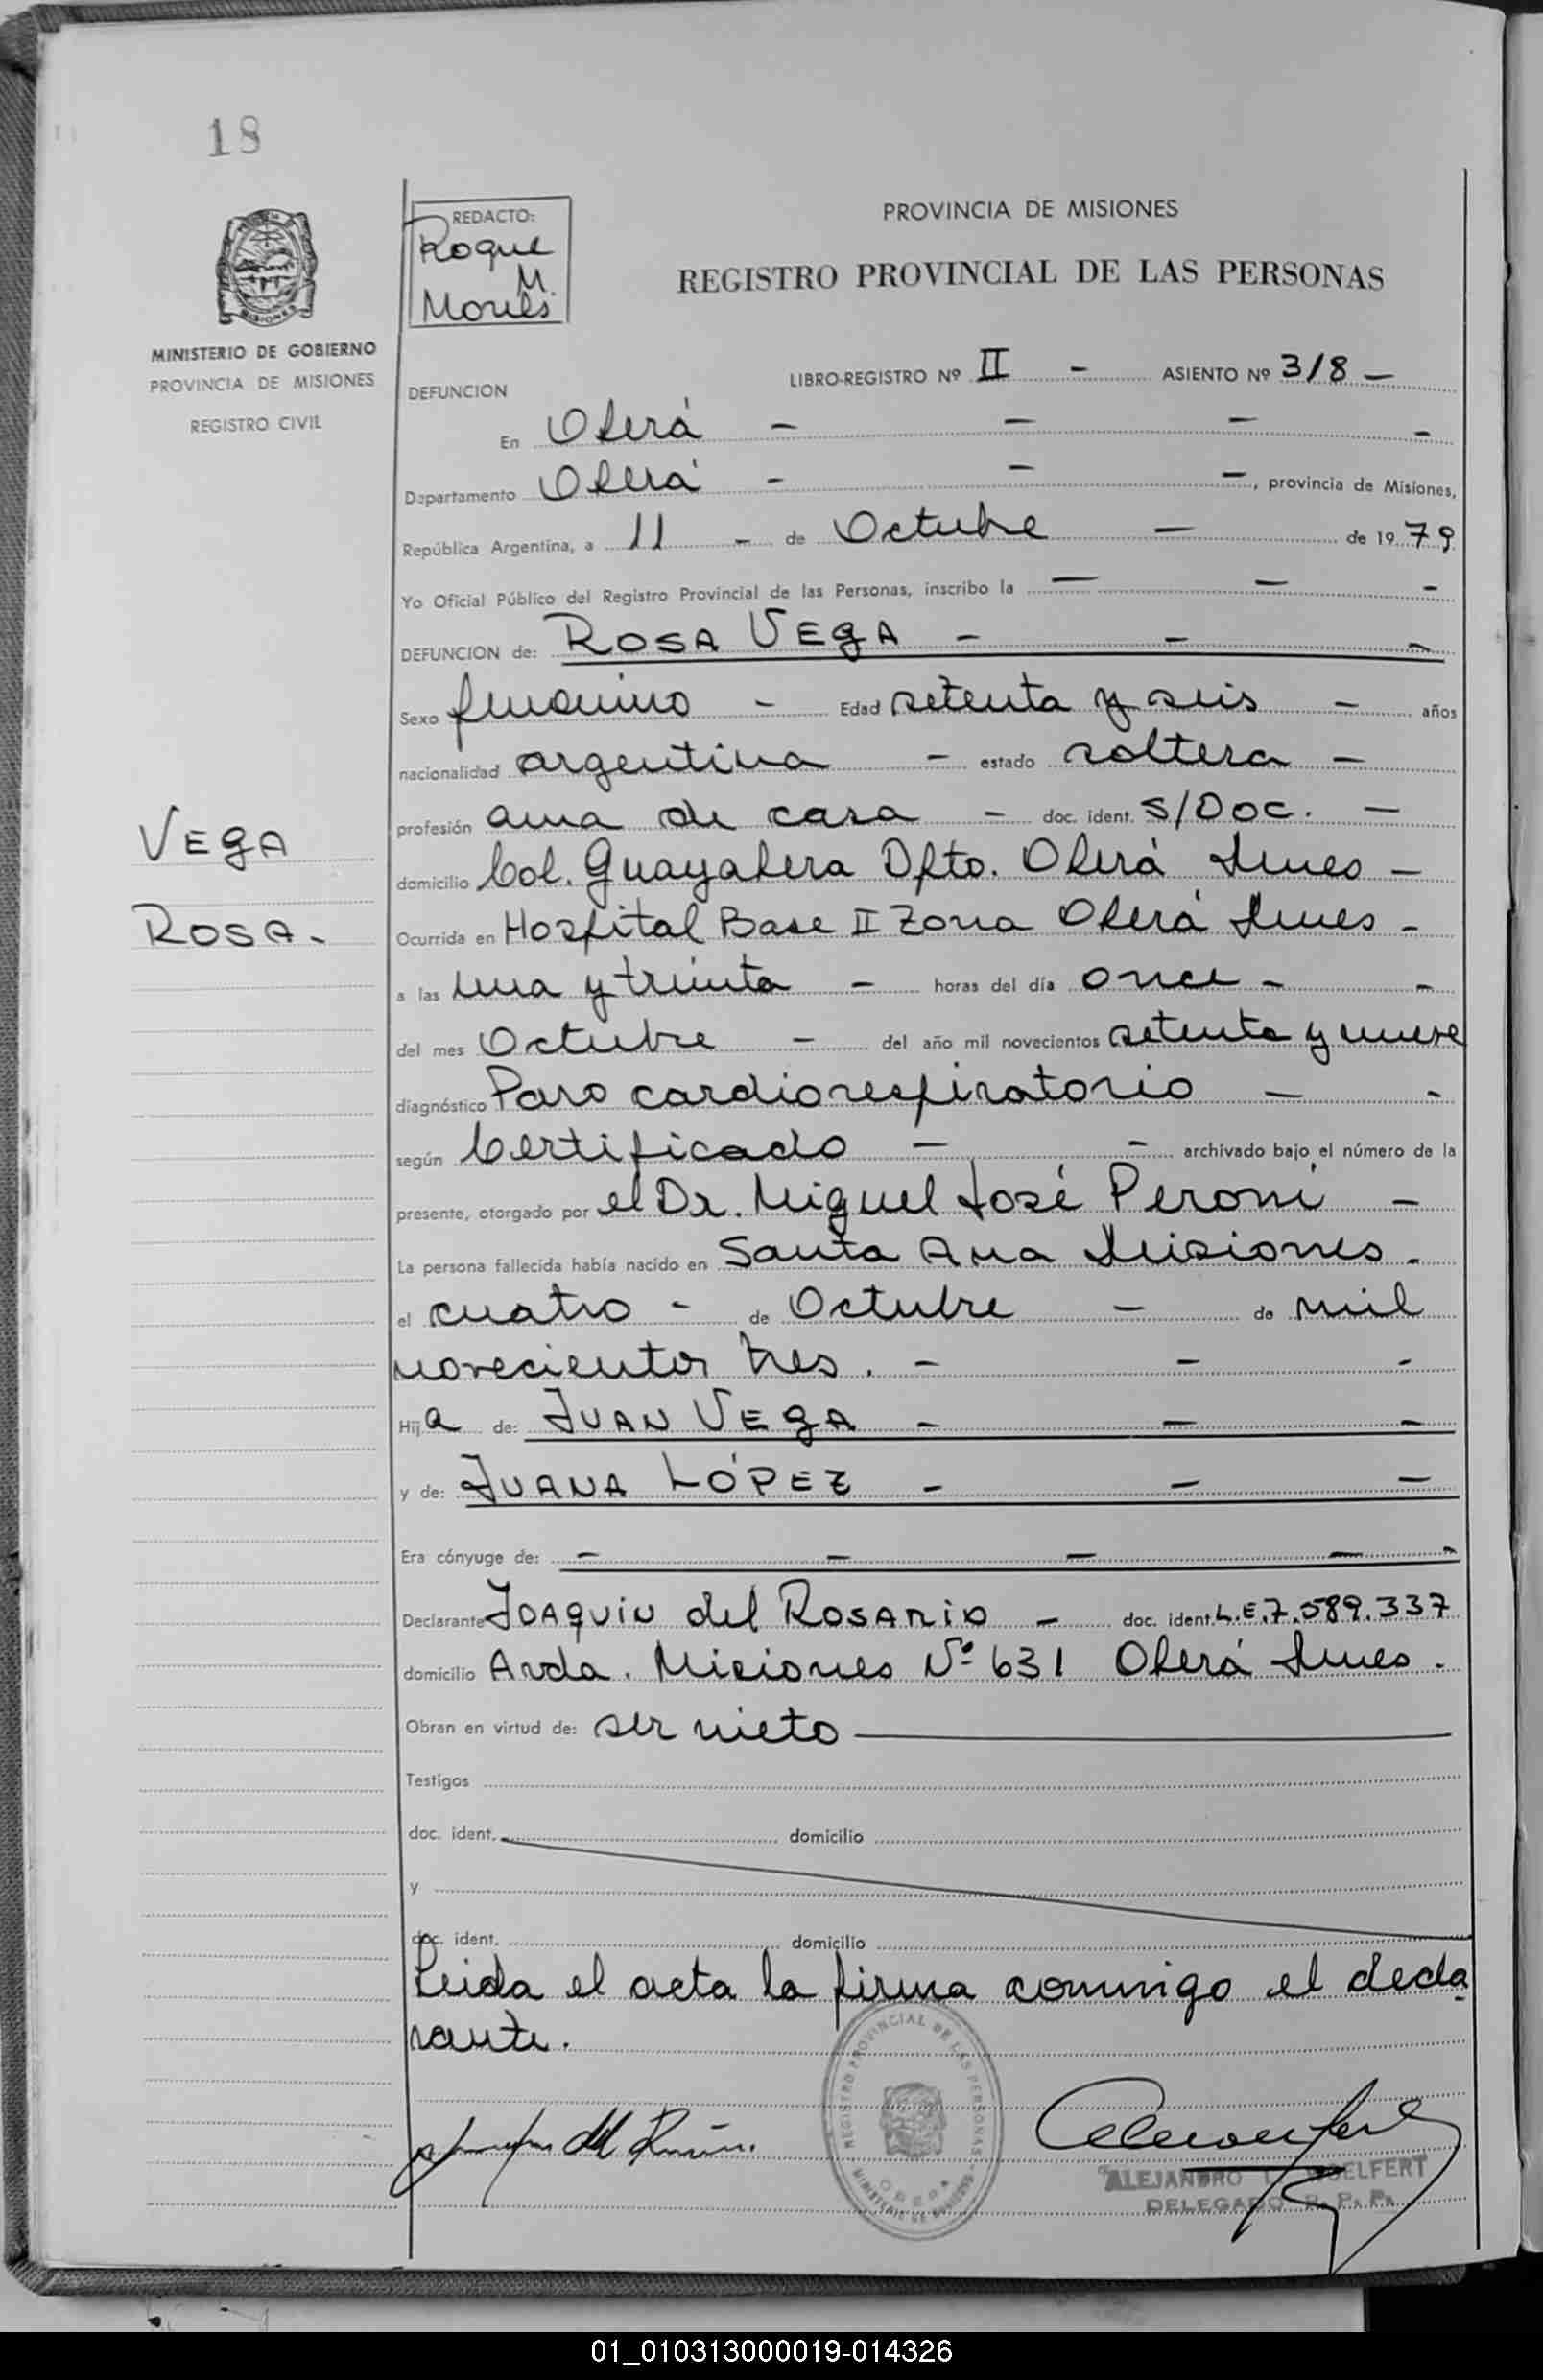 18
MINISTERIO DE GOBIERNO
PROVINCIA DE MISIONES
REGISTRO CIVIL
REDACTO:
Roque
M.
PROVINCIA DE MISIONES
REGISTRO PROVINCIAL DE LAS PERSONAS
DEFUNCION LIBRO-REGISTRO Nº II - ASIENTO Nº 318 -
En Oberá - - - -
Departamento Oberá - - -, provincia de Misiones,
República Argentina, a 11 - de Octubre - de 1979
Yo Oficial Público del Registro Provincial de las Personas, inscribo la - - -
DEFUNCION de: ROSA VEgA - - -
Sexo femenino - Edad setenta y seis - años
nacionalidad argentina - estado soltera -
VEgA
ROSA.-
profesión ama de casa - doc. ident. S/Doc. -
domicilio Col. Guayabera Dpto. Oberá Mnes -
Ocurrida en Hospital Base II Zona Oberá Mnes -
a las una y treinta - horas del día once - -
del mes Octubre - del año mil novecientos setenta y nueve
diagnóstico Paro cardiorespiratorio - -
según Certificado - - archivado bajo el número de la
presente, otorgado por el Dr. Miguel José Peroni -
La persona fallecida había nacido en Santa Ana Misiones -
el cuatro - de Octubre - de mil
novecientos tres. - - -
Hija de: JUAN VEgA - - -
y de: JUANA LÓPEZ - - -
Era cónyuge de: - - - - -
Declarante JOAQUIN del ROSARIO - doc. ident. L.E.7.589.337
domicilio Avda. Misiones Nº 631 Oberá Mnes.
Obran en virtud de: ser nieto
Testigos
doc. ident. domicilio
y
doc. ident. domicilio
Leida el acta la firma conmigo el decla
rante.
REGISTRO PROVINCIAL DE LAS PERSONAS
MINISTERIO DE GOBIERNO
OBERA
ALEJANDRO
DELEGADO R. P. P.
01_010313000019-014326